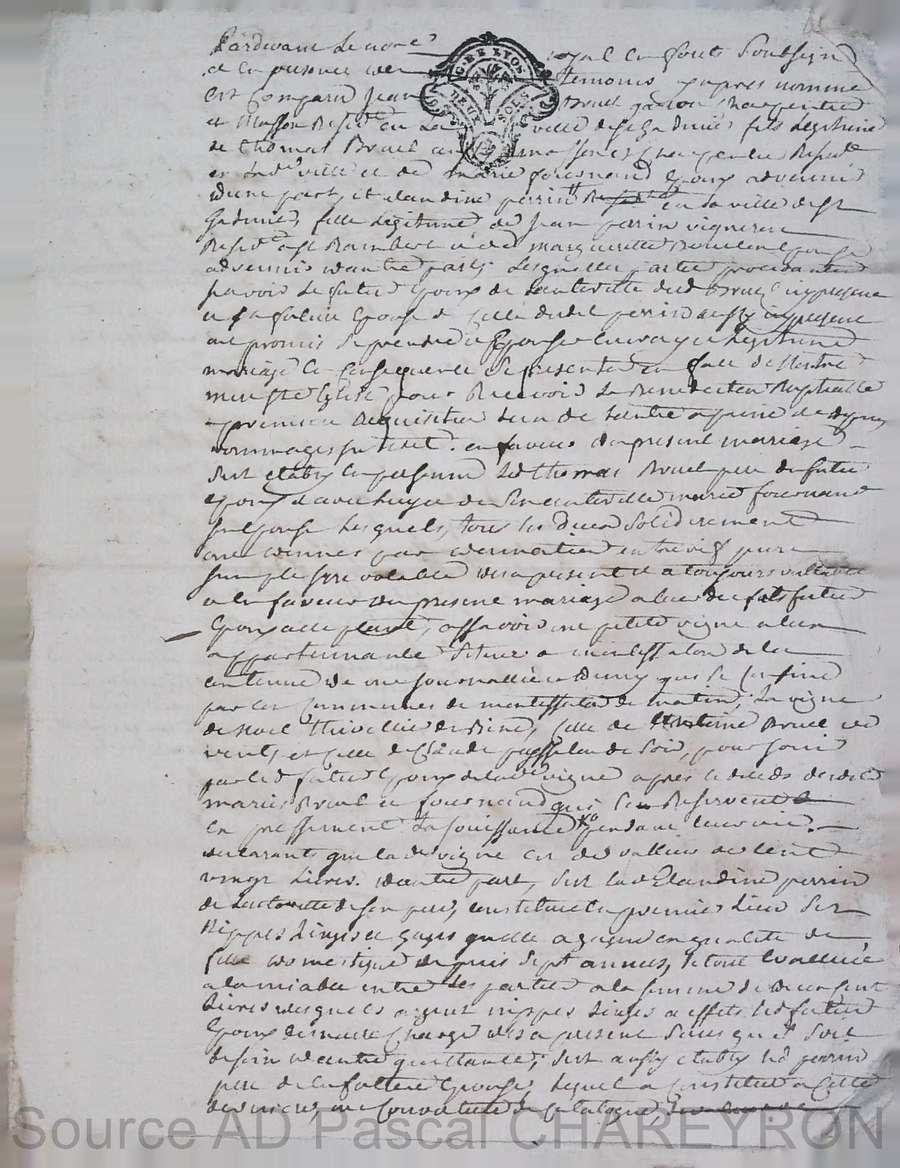 Pardevant le no.re royal en fouts soubsigné
et en presence des temoins cy apres nommé
est comparu Jean Bruel garcon charpentier
et masson resid.t en la ville de St Galmier fils legitime
de thomas Bruel aussy masson et charpentier resid.t
en lad.e ville et de marie fournand epoux advenir
d'une part, et claudine perrin en la ville de St
Galmier, fille legitime de Jean perrin vigneron
resid.t a St Rambert et de marguerite epouse
advenir d'autre part; lesquelles parties procedantes
scavoir le futur epoux de l'authorité dud. Bruel icy present
et la future epouse de celle dudit perrin aussy icy present
ont promis se prendre et epouser en vraye legitime
mariage en consequence se presenter en face de notre
mere Ste Eglise pour recevoir la Benediction Nuptialle
a premiere requisition de l'un de l'autre a peine de depens
dommages interet. en faveur du present mariage
s'est etably en personne led. thomas Bruel pere du futur
epoux et avec luy de son authorité marie fournand
son epouse lesquels, tous les deux solidairement
ont donnés par donnation entrevif pure
simple irrevocable des a present et a toujours vallable
et en faveur du present mariage a leur dit fils futur
epoux acceptant, assavoir une petite vigne a eux
appartenante située a de la
contenue de une journallié et demy que se confine
par les communes de de matin, la vigne
de noel de bize, celle de Bruel de
vent, et celle de Claude de soir, pour jouir
par led. futur epoux de lad.e vigne apres le deceds desdits
mariés Bruel et fournand qui s'en reservent
expressement la jouissance pendant leur vie.
declarants que lad.e vigne est de valleur de cent
vingt livres. d'autre part, s'est lad. Claudine perrin
de l'authorité de son pere, constitué en premier lieu ses
nippes linges et gages quelle a gagné en qualité de
fille domestique depuis sept années, le tout evallué
a l'amiable entre les parties a la somme de deux cent
livres desquels argent nippes linges et effets led. futur
epoux demeure chargé des a present sans qu'il soit
besoin d'autre quittance; s'est aussy etably led. perrin
pere de la future epouse, lequel a constitué a cette
derniere, une couverture de catalogne
C. DE LYON
DEUX SOLS
Source AD Pascal CHAREYRON